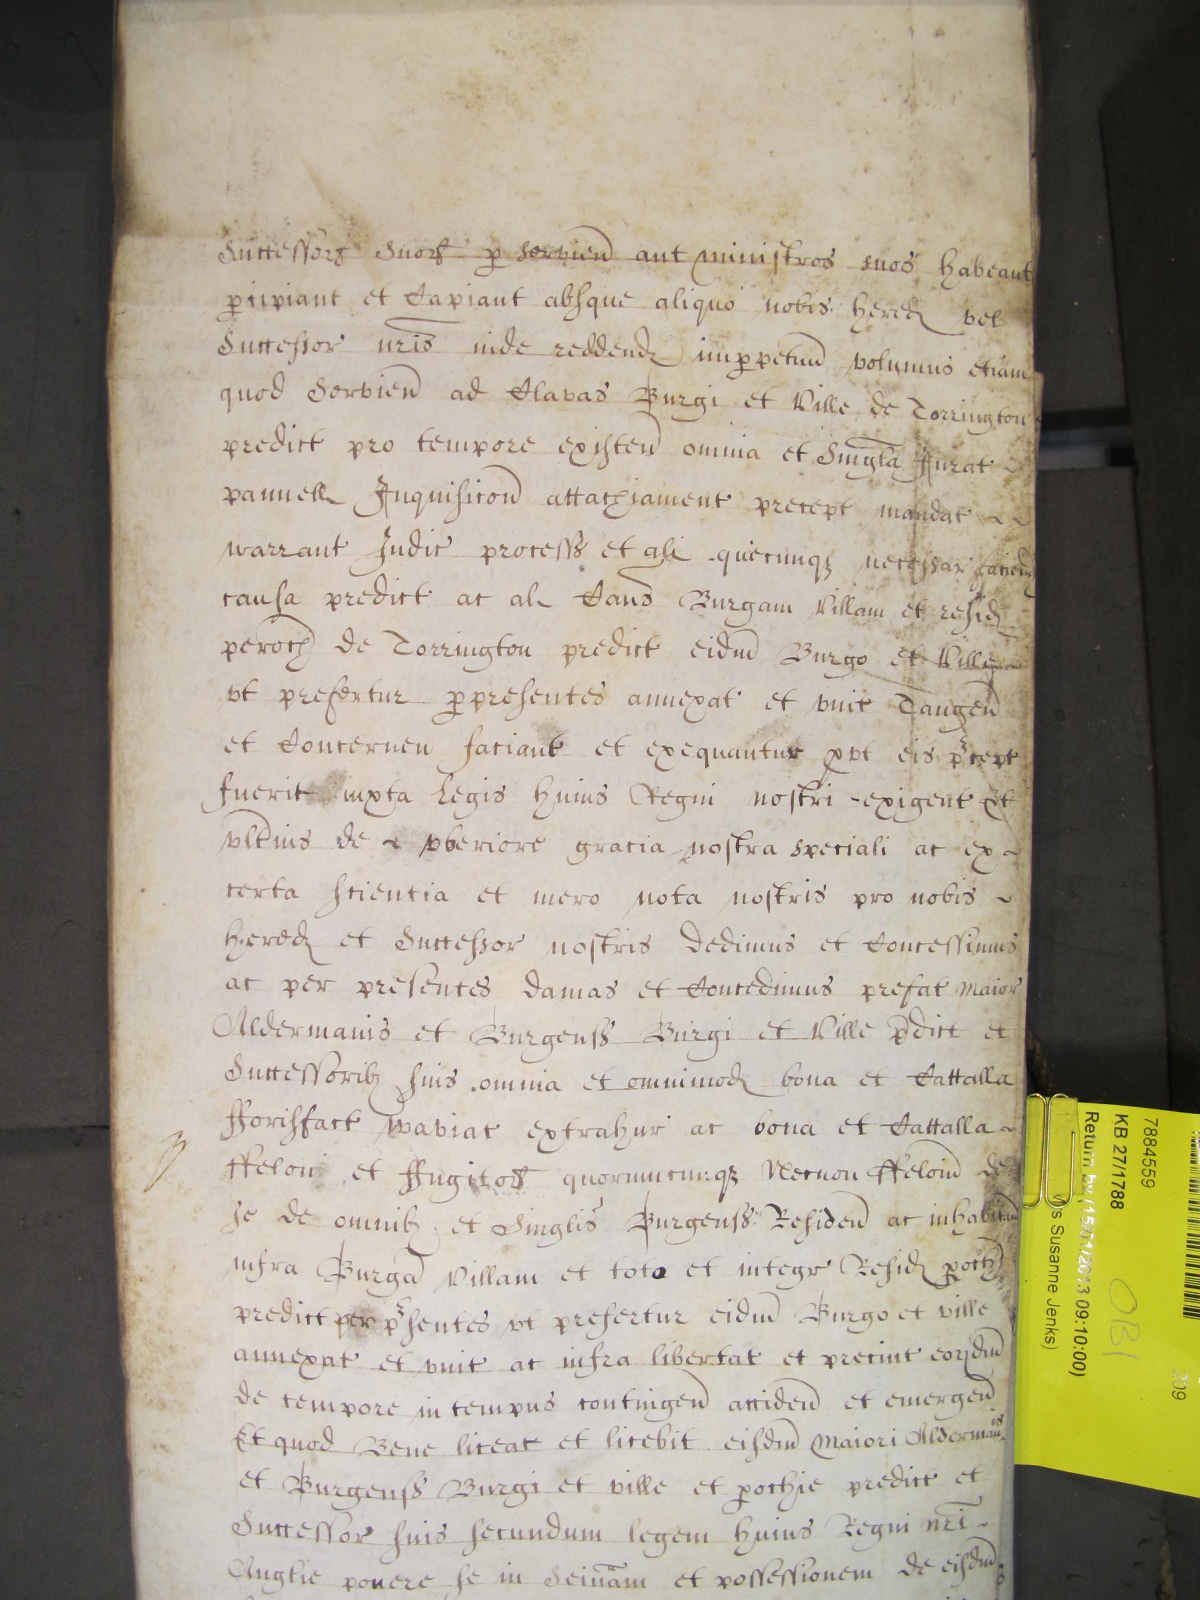 Successors suos per servien aut ministros suos habeant
percipiant et Capiant absque aliquo nobis hered vel
Successor nris inde reddend imperpetuu volumus etiam
quod Servien ad Clavas Burgi et Ville de Torrington
predict pro tempore existen omnia et Singla Jurat
pannell Inquisicon attachiament precept mandat
warrant Judic process et al quecunq necessar faciend
causa predict ac al Caus Burgam Villam et resid
peroch de Torrington predict eidm Burgo et Ville
vt prefertur per presentes annexat et vnit Tangen
et Concernen faciant et exequantur pvt eis pcept
fuerit iuxta Legis huius Regni nostri exigent Et
vltius de vberiore gracia nostra speciali ac ex
certa scientia et mero nota nostris pro nobis
hered et Successor nostris dedimus et Concessimus
ac per presentes damas et Concedimus prefat Maior
Aldermanis et Burgenss Burgi et Ville pdict et
Successorib suis omnia et omnimod bona et Cattalla
fforisfact waviat extrahur ac bona et Cattalla
ffeloni et ffugitos quorumcunq Necnon ffeloin de
se de omnib et Singlis Burgenss Residen ac inhabitan
infra Burga Villam et toto et integr Resid poch
predict per psentes vt prefertur eidm Burgo et ville
annexat et vnit ac infra libertat et precint eorundm
de tempore in tempus contingen acciden et emergen
Et quod Bene liceat et licebit eisdm Maiori Aldermanis
et Burgenss Burgi et ville et pochie predict et
Successor suis secundum legem huius Regni nri
Anglie ponere se in Seinam et possessionem de eisdm
7884559
KB 27/1788
Return by (15/01/2013 09:10:00)
s Susanne Jenks)
OBI
209